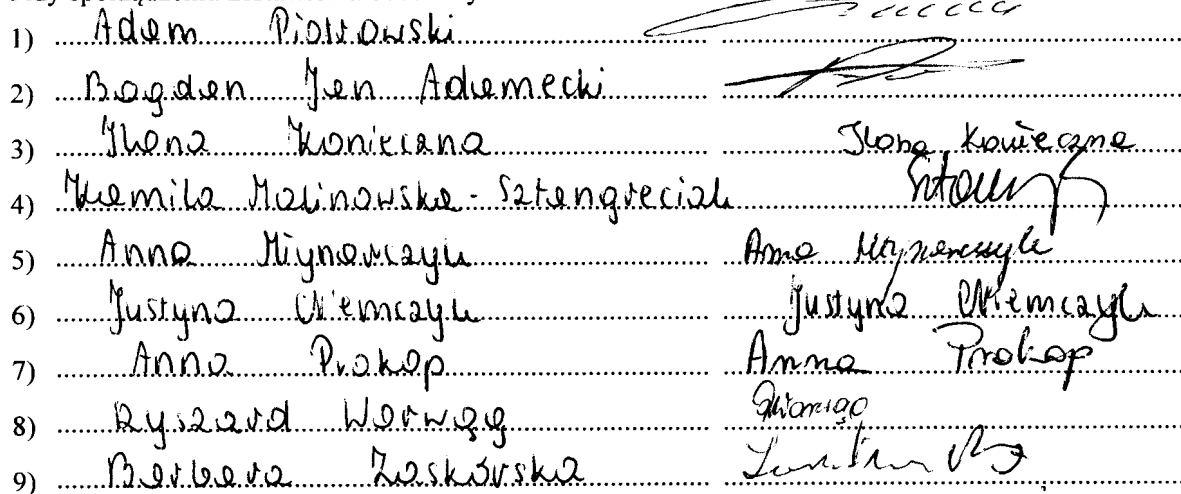 1) Adam Piotrowski
2) Bogdan Jan Adamecki
3) Ilona Konieczna Ilona Konieczna
4) Kamila Malinowska-Sztangreciak
5) Anna Młynarczyk Anna Młynarczyk
6) Justyna Niemczyk Justyna Niemczyk
7) Anna Prokop Anna Prokop
8) Ryszard Warwąg
9) Barbara Zaskórska